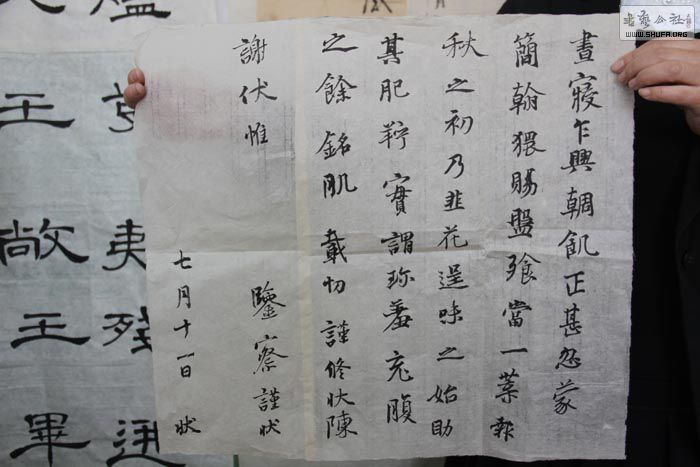 書藝公社
WWW.SHUFA.ORG
晝寢乍興輖飢正甚忽蒙
簡翰猥賜盤飧當一葉報
秋之初乃韭花逞味之始助
其肥羜實謂珍羞充腹
之餘銘肌載切謹修狀陳
謝伏惟 鑒察謹狀
七月十一日 狀
夷殘
王敞王畢